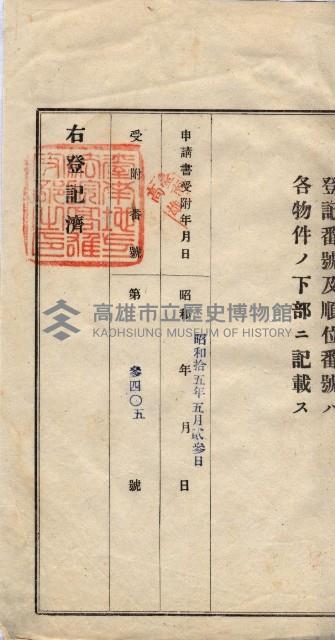 登記番號及順位番號ハ
各物件ノ下部ニ記載ス
申請書受附年月日
昭和 年 月 日
昭和拾五年五月貳參日
受附番號
第 參四〇五 號
右登記濟
高雄市立歷史博物館
KAOHSIUNG MUSEUM OF HISTORY